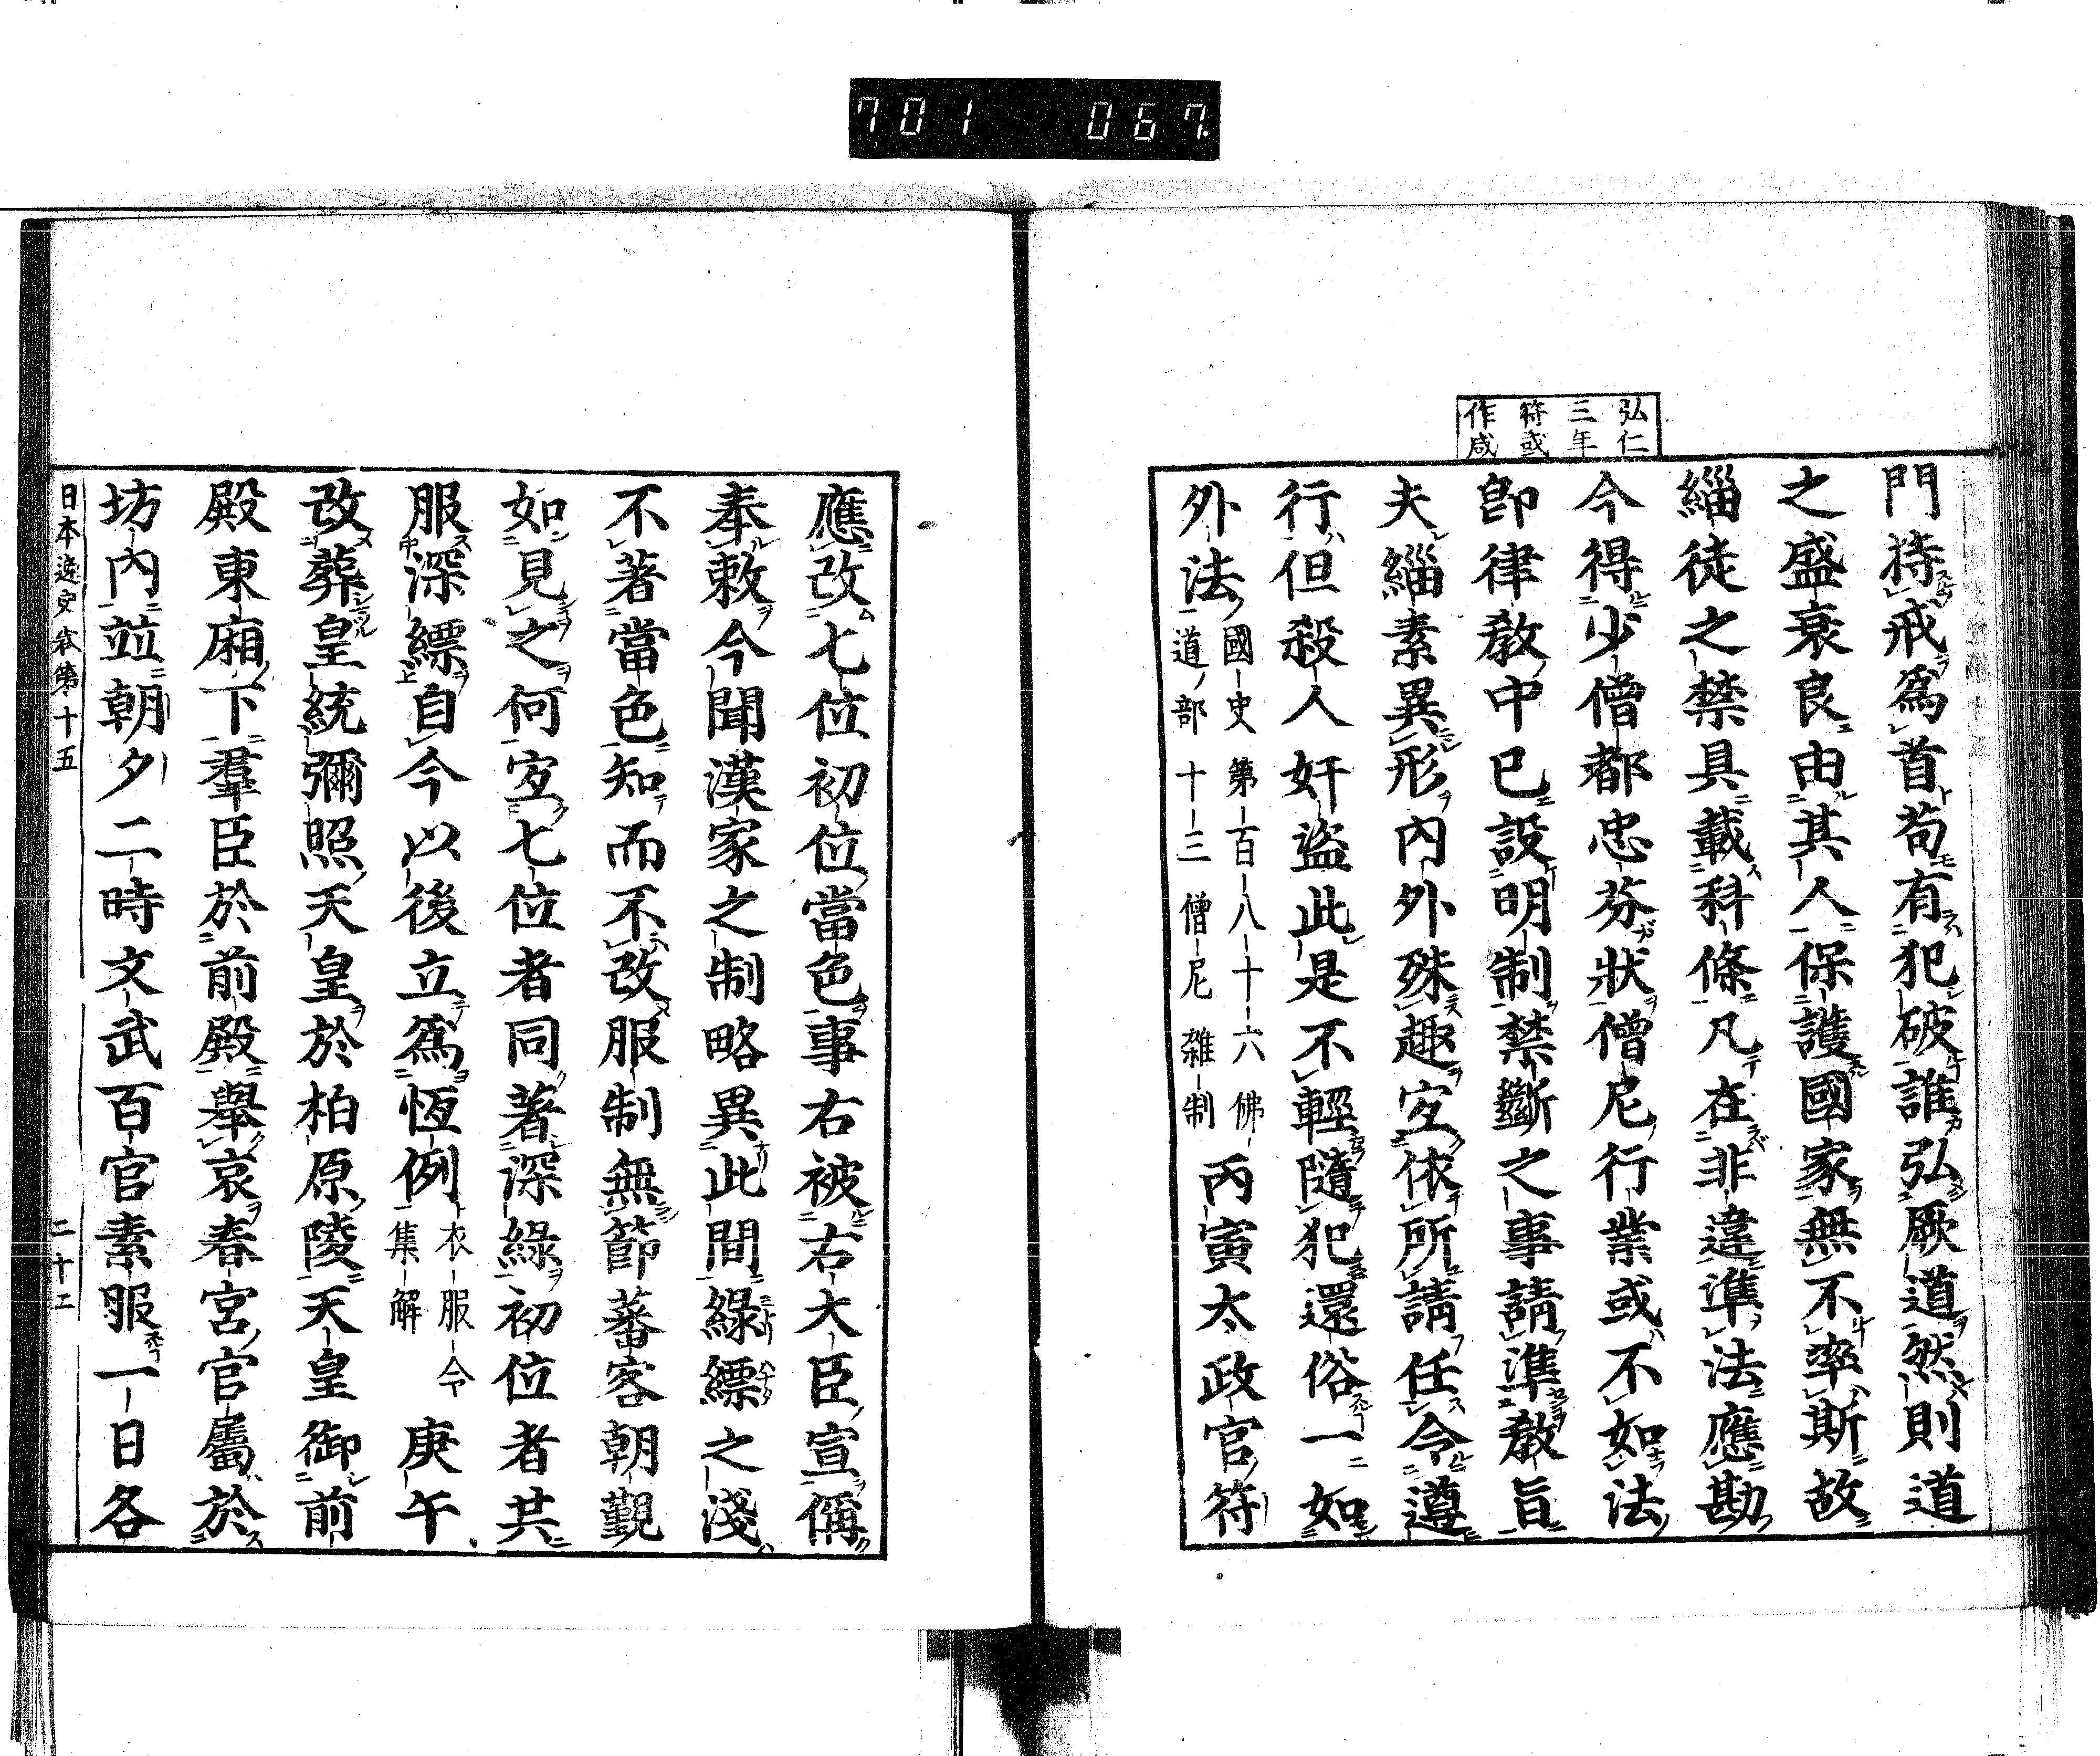 701 067
弘仁
三年
符或
作咸
門持戒爲首苟有犯破誰弘厥道然則道
之盛衰良由其人保護國家無不率斯故
緇徒之禁具載科條凡在非違準法應勘
今得少僧都忠芬狀僧尼行業或不如法
卽律敎中已設明制禁斷之事請準敎旨
夫緇素異形內外殊趣宜依所請任令遵
行但殺人奸盜此是不輕隨犯還俗一如
外法國史第百八十六佛
道部十三僧尼雜制丙寅太政官符
應改七位初位當色事右被右大臣宣稱
奉敕今聞漢家之制略異此間綠縹之淺
不著當色知而不改服制無節蕃客朝覲
如見之何宜七位者同著深綠初位者共
服深縹自今以後立爲恆例衣服令
集解庚午
改葬皇統彌照天皇於柏原陵天皇御前
殿東廂下羣臣於前殿舉哀春宮官屬於
坊內竝朝夕二時文武百官素服一日各
日本逸史卷第十五 二十二